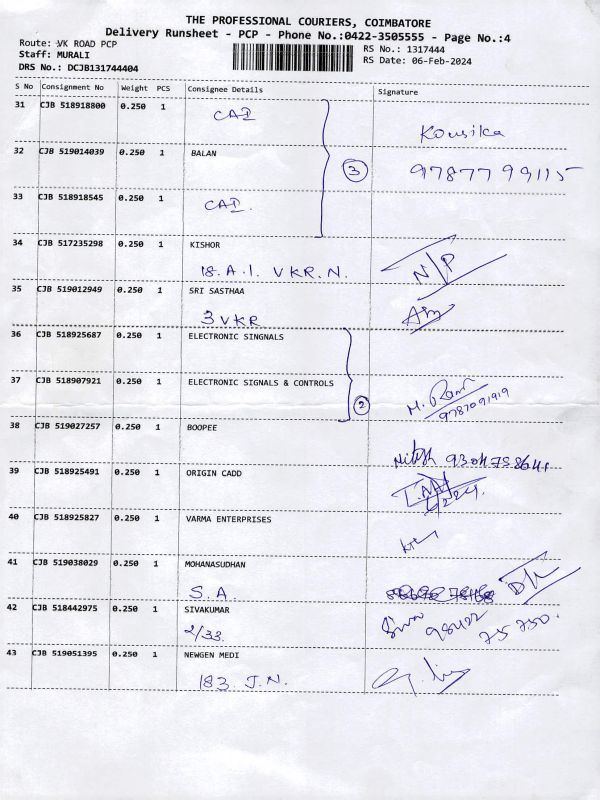 THE PROFESSIONAL COURIERS, COIMBATORE
Delivery Runsheet - PCP - Phone No.:0422-3505555 - Page No.:4
Route: VK ROAD PCP
RS No.: 1317444
Staff: MURALI
RS Date: 06-Feb-2024
DRS No.: DCJB131744404
S No Consignment No Weight PCS Consignee Details Signature
31 CJB 518918800 0.250 1 CAI
Kousika
32 CJB 519014039 0.250 1 BALAN
3 97877 99115
33 CJB 518918545 0.250 1 CAI.
34 CJB 517235298 0.250 1 KISHOR
18.A.1. VKR.N. N/P
35 CJB 519012949 0.250 1 SRI SASTHAA
3 VKR
36 CJB 518925687 0.250 1 ELECTRONIC SINGNALS
37 CJB 518907921 0.250 1 ELECTRONIC SIGNALS & CONTROLS
2 M. Rami
9787091919
38 CJB 519027257 0.250 1 BOOPEE
Nitish
39 CJB 518925491 0.250 1 ORIGIN CADD
40 CJB 518925827 0.250 1 VARMA ENTERPRISES
41 CJB 519038029 0.250 1 MOHANASUDHAN
S.A.
42 CJB 518442975 0.250 1 SIVAKUMAR
2/33. Siva 98422
75 750.
43 CJB 519051395 0.250 1 NEWGEN MEDI
183 J.N.